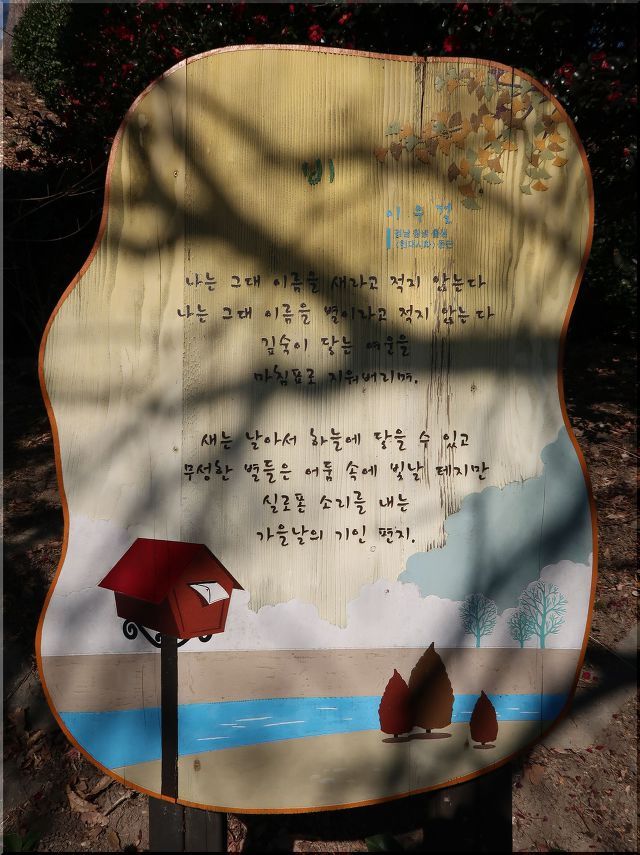 비
이우걸
경남 창녕 출생
《현대시학》 등단
나는 그대 이름을 새라고 적지 않는다
나는 그대 이름을 별이라고 적지 않는다
깊숙이 닿는 여운을
마침표로 지워버리며.
새는 날아서 하늘에 닿을 수 있고
무성한 별들은 어둠 속에 빛날 테지만
실로폰 소리를 내는
가을날의 기인 편지.